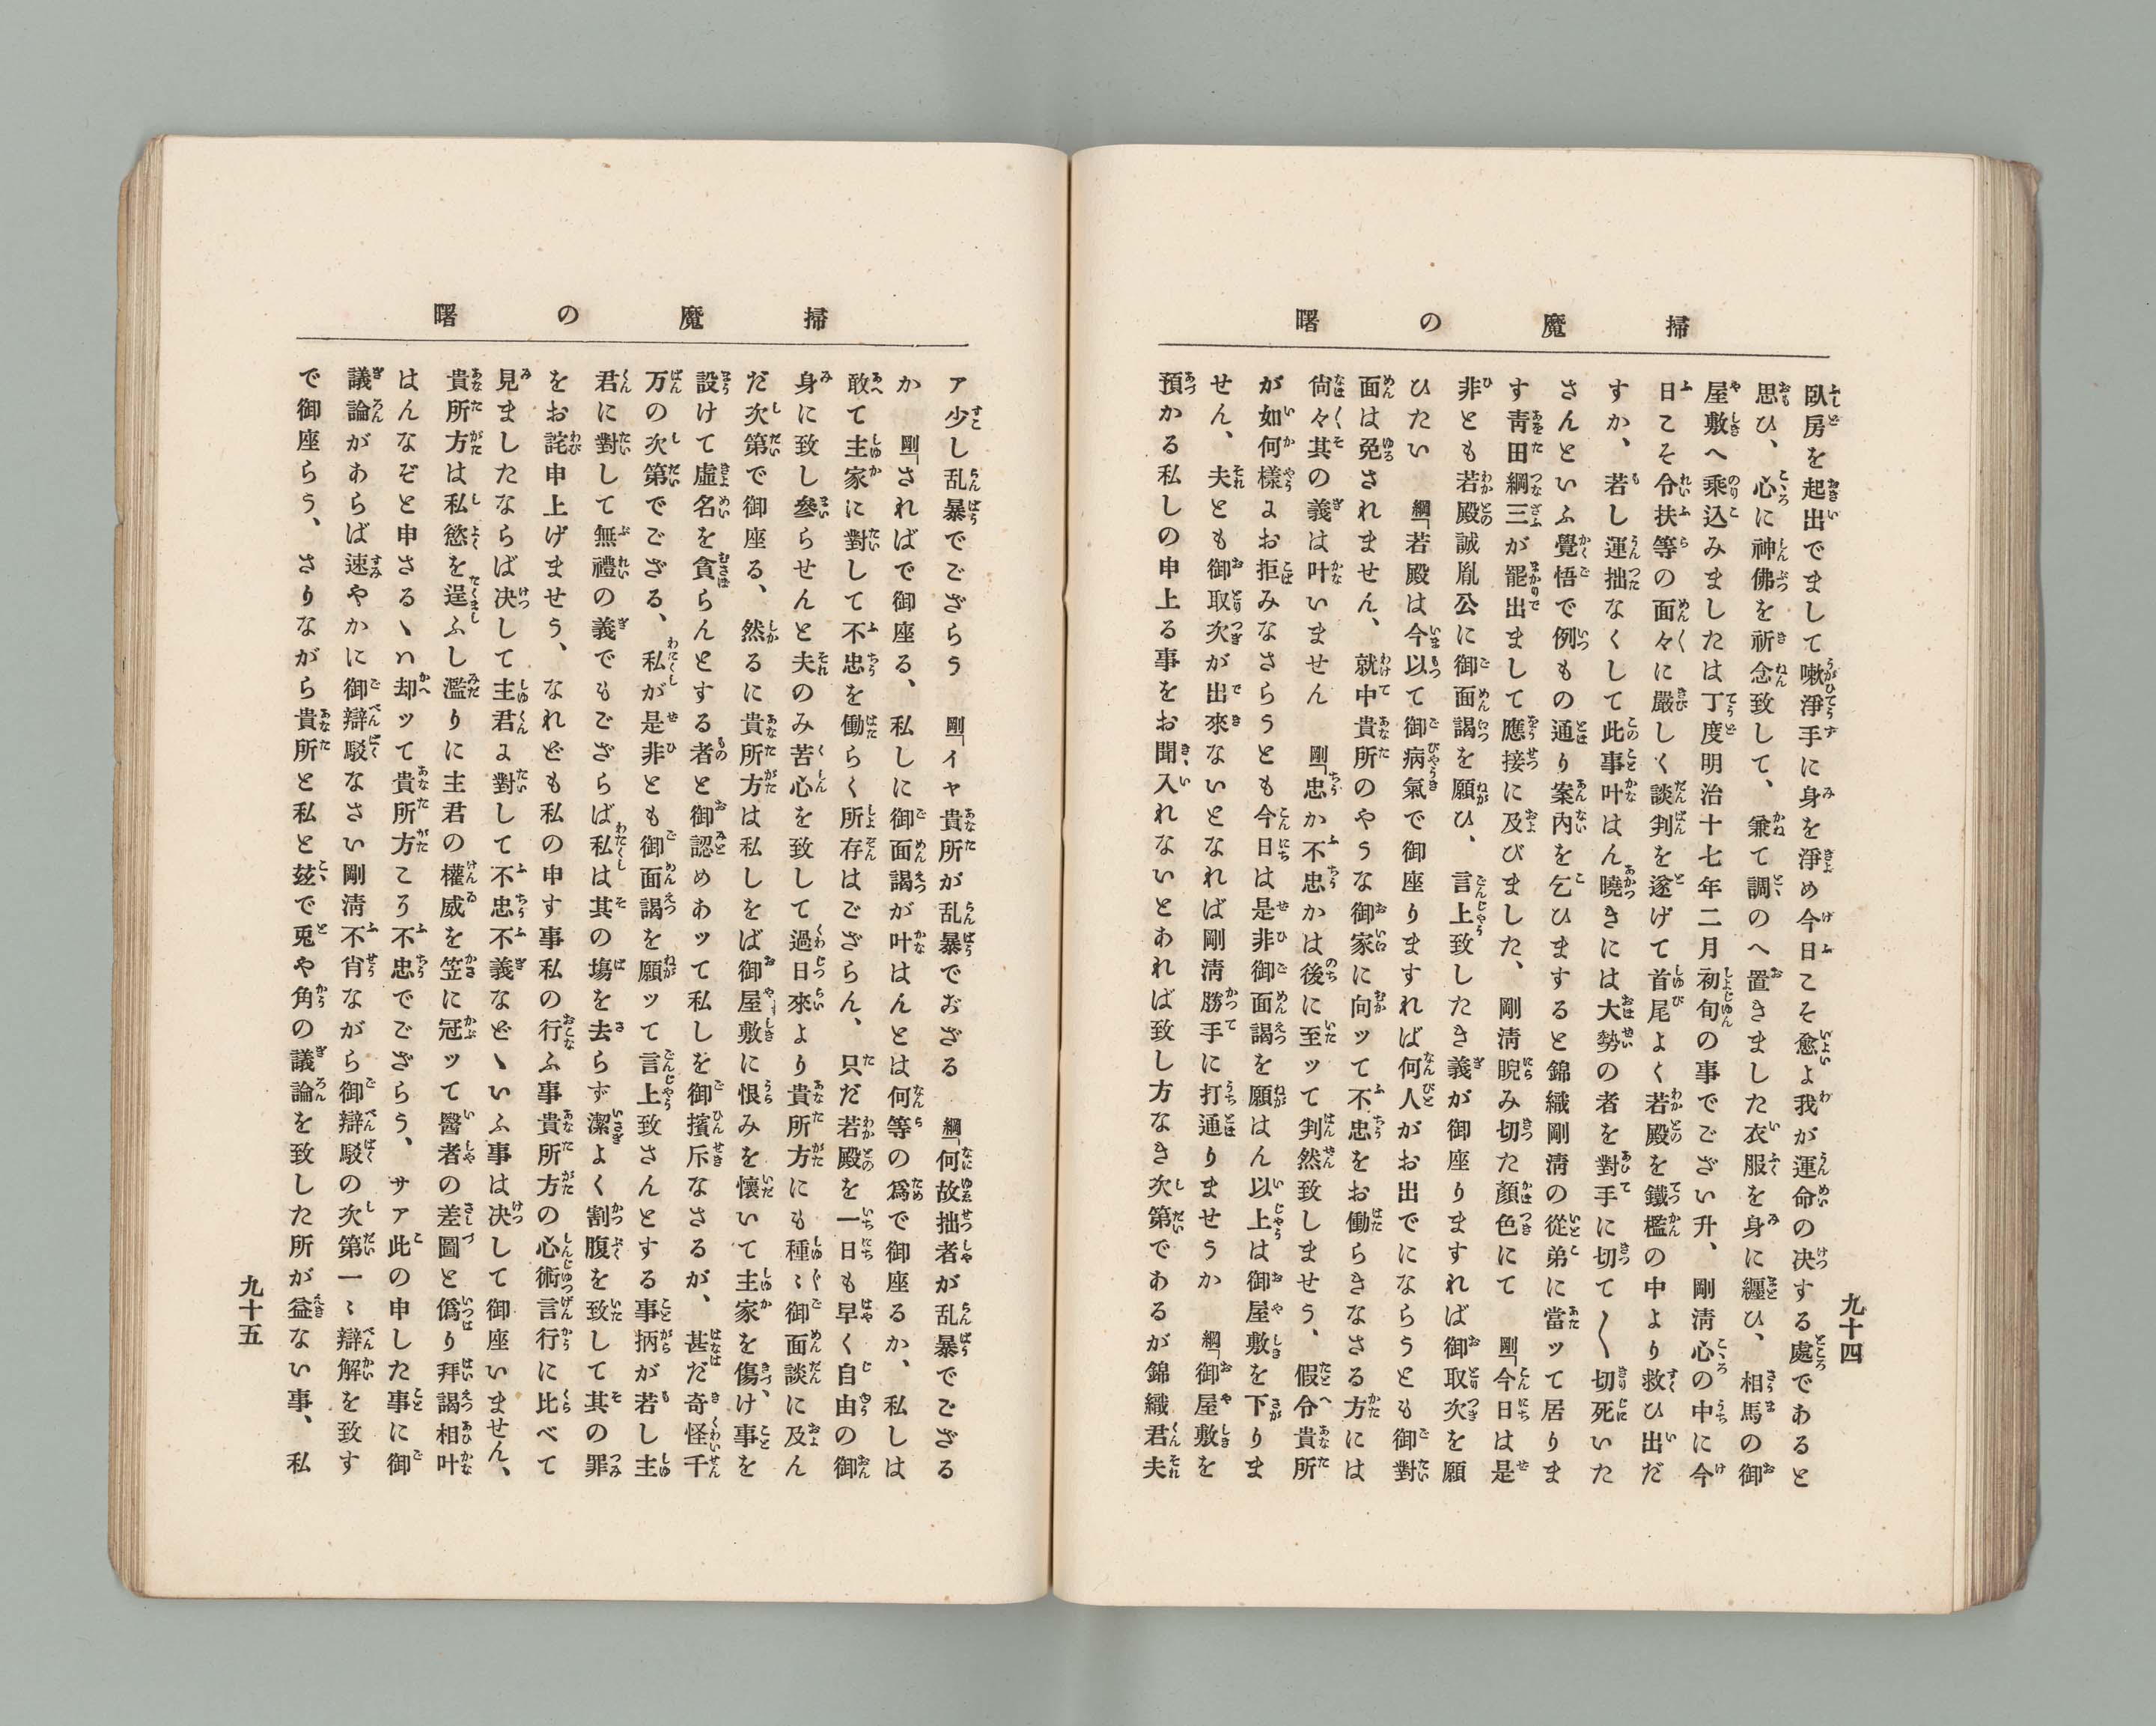 掃魔の曙
臥房を起出でまして嗽淨手に身を淨め今日こそ愈よ我が運命の决する處であると
思ひ、心に神佛を祈念致して、兼て調のへ置きました衣服を身に纒ひ、相馬の御
屋敷へ乘込みましたは丁度明治十七年二月初旬の事でござい升、剛淸心の中に今
日こそ令扶等の面々に嚴しく談判を遂げて首尾よく若殿を鐵檻の中より救ひ出だ
すか、若し運拙なくして此事叶はん曉きには大勢の者を對手に切て〱切死いた
さんといふ覺悟で例もの通り案內を乞ひますると錦織剛淸の從弟に當ッて居りま
す靑田綱三が罷出まして應接に及びました、剛淸睨み切た顏色にて　剛「今日は是
非とも若殿誠胤公に御面謁を願ひ、言上致したき義が御座りますれば御取次を願
ひたい　綱「若殿は今以て御病氣で御座りますれば何人がお出でにならうとも御對
面は免されません、就中貴所のやうな御家に向ッて不忠をお働らきなさる方には
尙々其の義は叶いません　剛「忠か不忠かは後に至ッて判然致しませう、假令貴所
が如何樣よお拒みなさらうとも今日は是非御面謁を願はん以上は御屋敷を下りま
せん、夫とも御取次が出來ないとなれば剛淸勝手に打通りませうか　綱「御屋敷を
預かる私しの申上る事をお聞入れないとあれば致し方なき次第であるが錦織君夫
九十四
掃魔の曙
ア少し乱暴でござらう　剛「イヤ貴所が乱暴でおざる　綱「何故拙者が乱暴でござる
か　剛「さればで御座る、私しに御面謁が叶はんとは何等の爲で御座るか、私しは
敢て主家に對して不忠を働らく所存はござらん、只だ若殿を一日も早く自由の御
身に致し參らせんと夫のみ苦心を致して過日來より貴所方にも種〻御面談に及ん
だ次第で御座る、然るに貴所方は私しをば御屋敷に恨みを懷いて主家を傷け事を
設けて虛名を貪らんとする者と御認めあッて私しを御擯斥なさるが、甚だ奇怪千
万の次第でござる、私が是非とも御面謁を願ッて言上致さんとする事柄が若し主
君に對して無禮の義でもござらば私は其の塲を去らず潔よく割腹を致して其の罪
をお詫申上げませう、なれども私の申す事私の行ふ事貴所方の心術言行に比べて
見ましたならば决して主君よ對して不忠不義などゝいふ事は决して御座いません、
貴所方は私慾を逞ふし濫りに主君の權威を笠に冠ッて醫者の差圖と僞り拜謁相叶
はんなぞと申さるゝハ却ッて貴所方こう不忠でござらう、サア此の申した事に御
議論があらば速やかに御辯駁なさい剛淸不肖ながら御辯駁の次第一〻辯解を致す
で御座らう、さりながら貴所と私と玆で兎や角の議論を致した所が益ない事、私
九十五